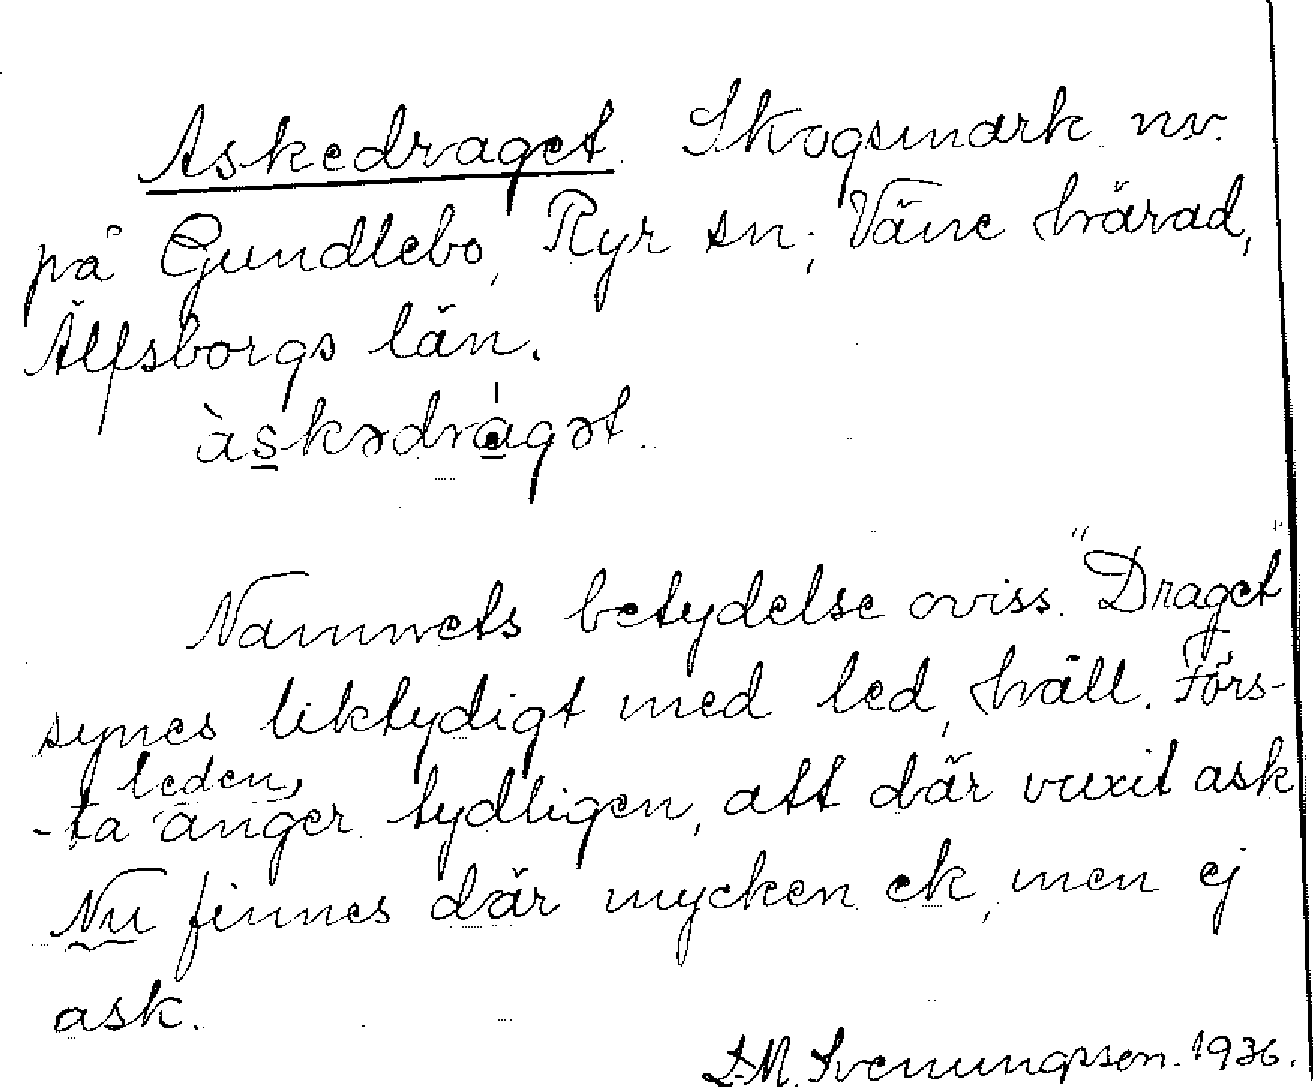 Askedraget. Skogsmark nv.
på Gundlebo, Ryr sn; Väne härad,
Älfsborgs län.
àskədrágət.
Namnets betydelse oviss. "Draget"
synes liktydigt med led, häll. Förs-
leden
-ta anger tydligen, att där vuxit ask
Nu finnes där mycken ek, men ej
ask.
L.M. Svenungsson. 1936.